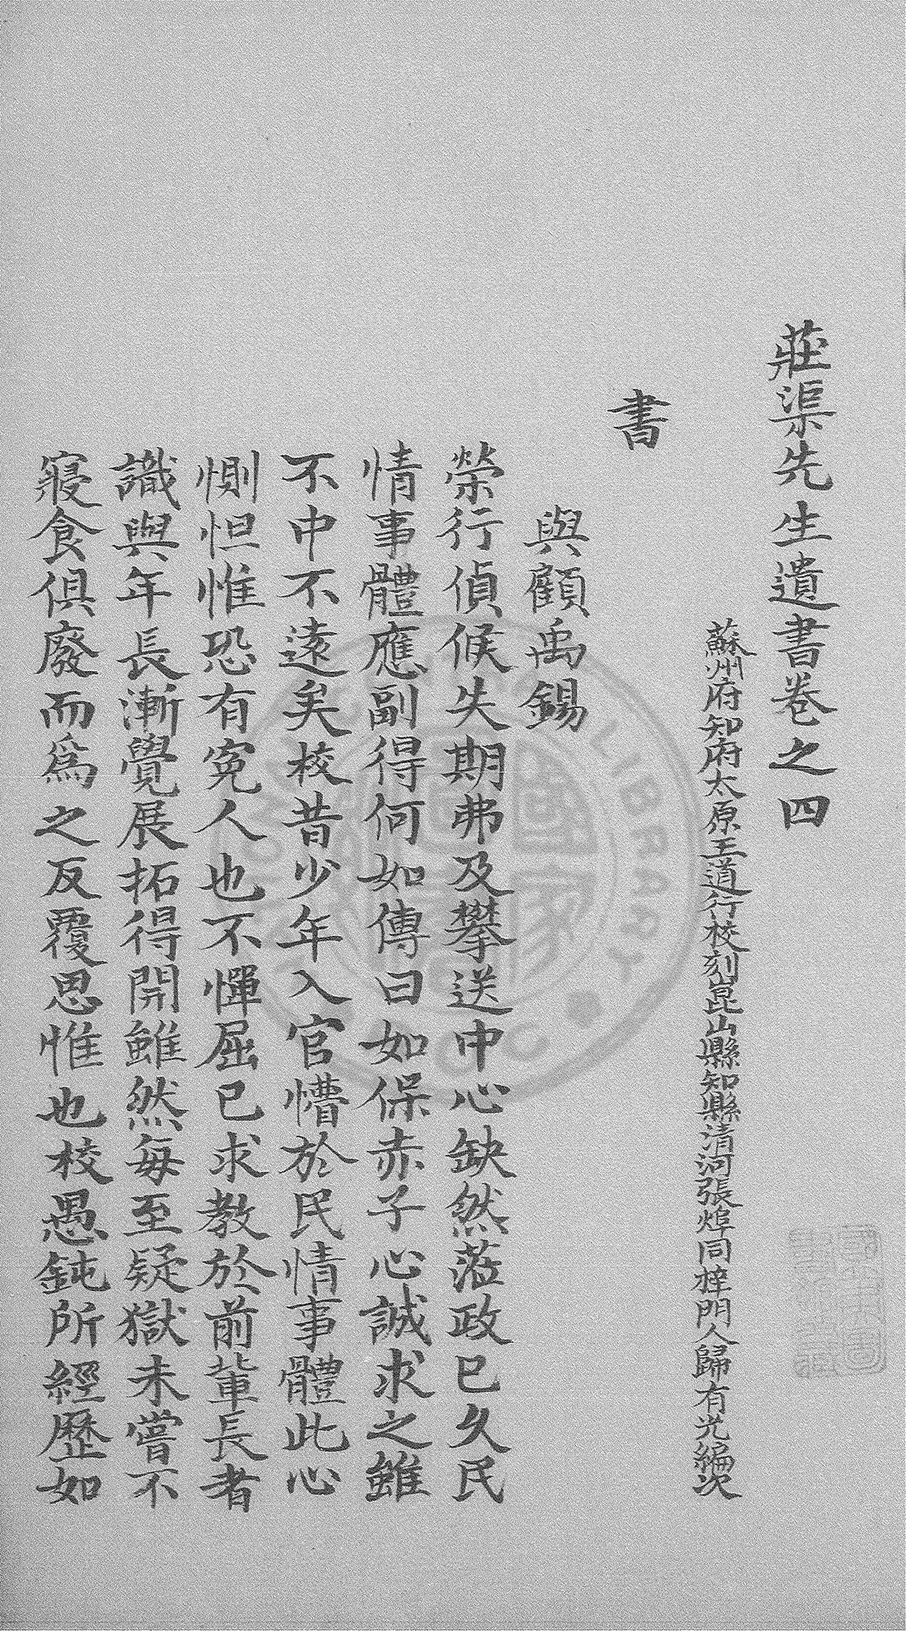 莊渠先生遺書卷之四
蘇州府知府太原王道行校刻崑山縣知縣清河張煒同梓門人歸有光編次
書
與顧禹錫
榮行偵候失期弗及攀送中心缺然蒞政已久民
情事體應副得何如傳曰如保赤子心誠求之雖
不中不遠矣校昔少年入官懵於民情事體此心
惻怛惟恐有寃人也不憚屈已求教於前輩長者
識與年長漸覺展拓得開雖然每至疑獄未嘗不
寢食俱廢而爲之反覆思惟也校愚鈍所經歷如